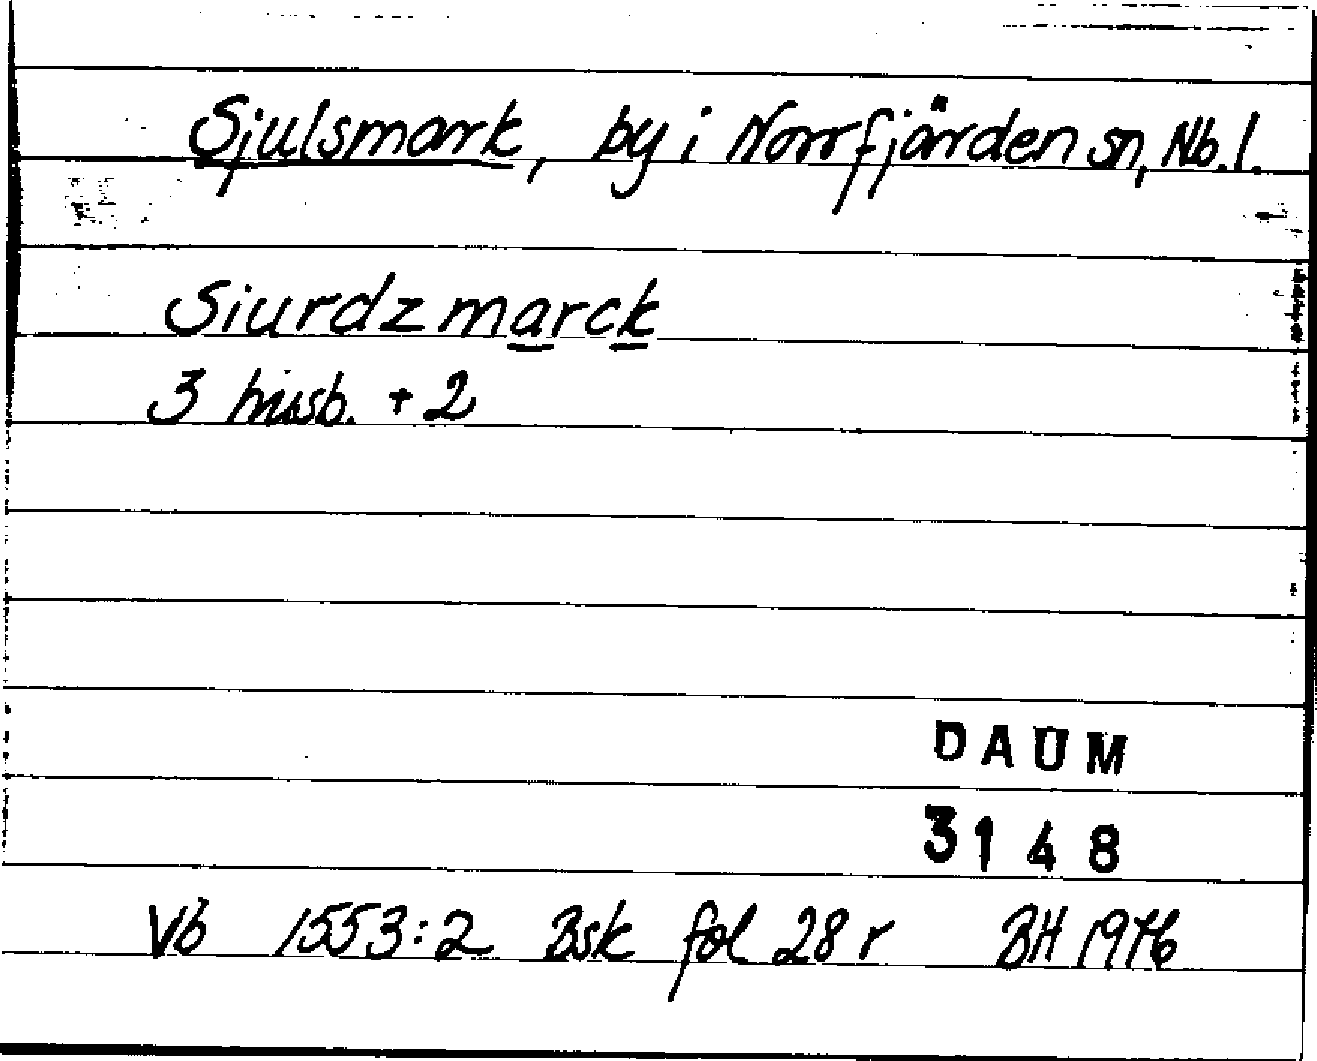 Sjulsmark, by i Norrfjärden sn, Nb. l.
Siurdzmarck
3 husb. + 2
DAUM
3148
Vb 1553:2 Bsk fol 28 r BH 1976